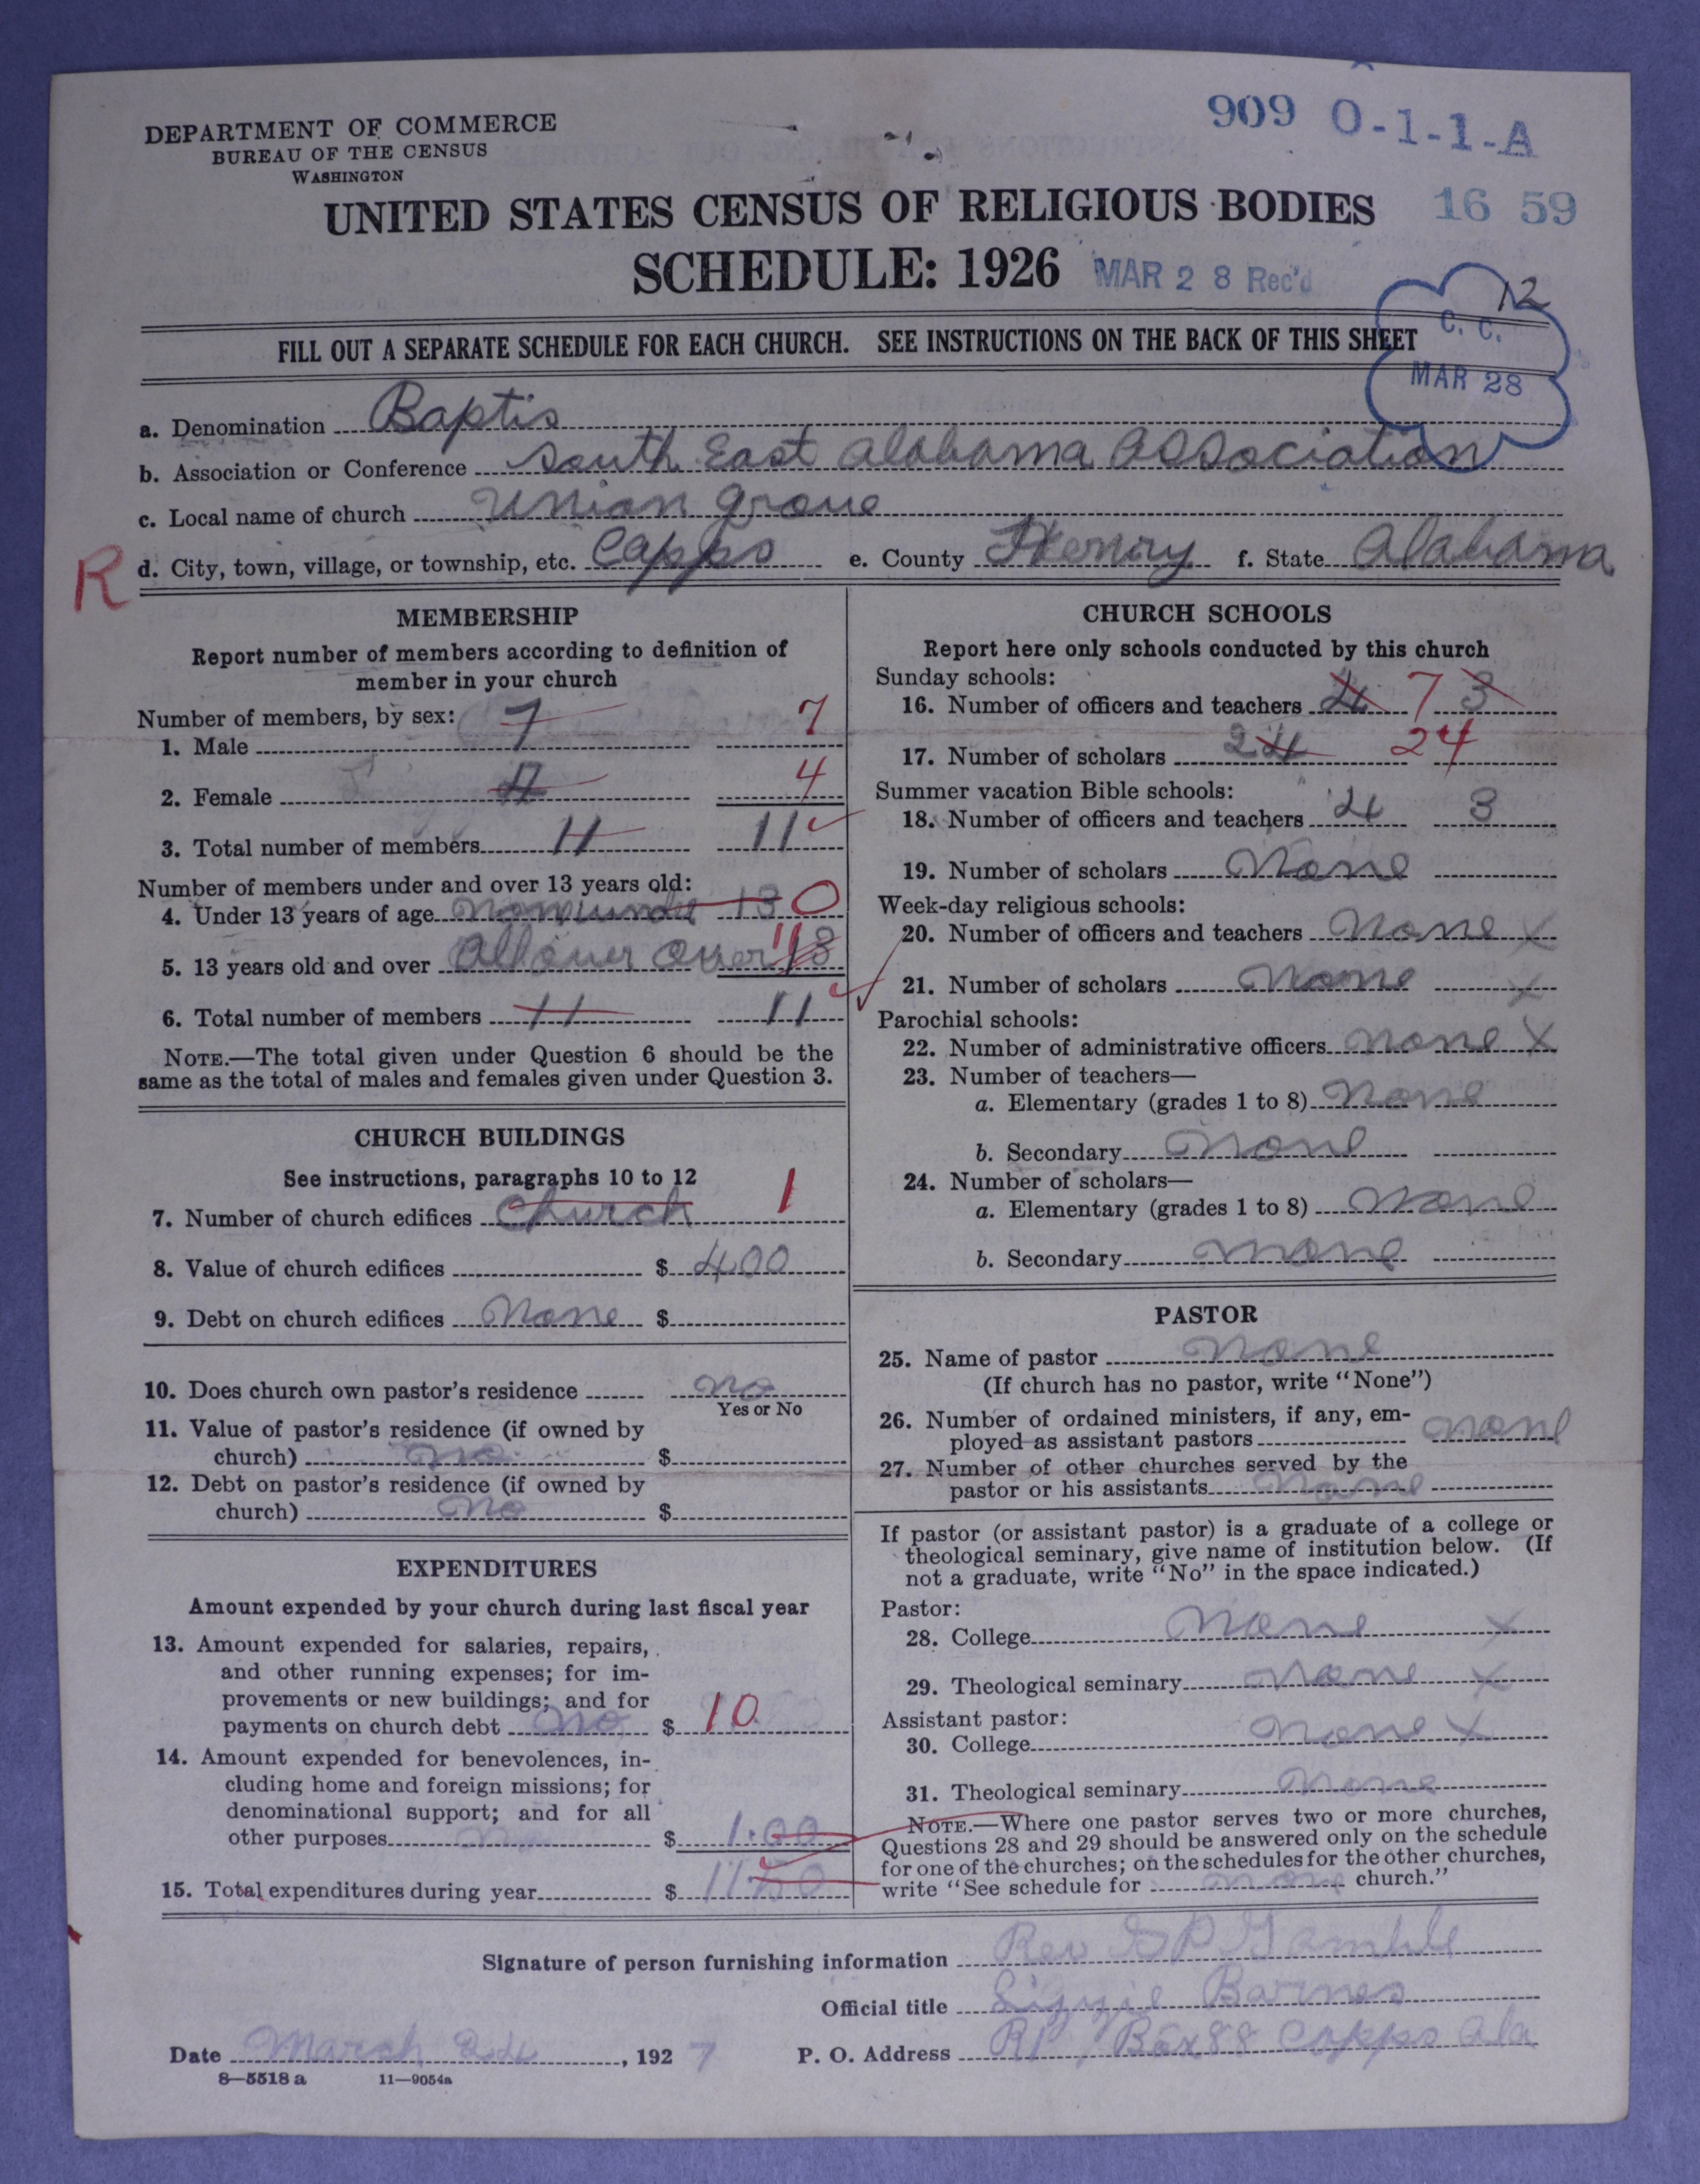 DEPARTMENT OF COMMERCE
BUREAU OF THE CENSUS
WASHINGTON
909 O-1-1-A
UNITED STATES CENSUS OF RELIGIOUS BODIES 16 59
SCHEDULE: 1926 MAR 28 Rec'd
12
C. C.
MAR 28
FILL OUT A SEPARATE SCHEDULE FOR EACH CHURCH. SEE INSTRUCTIONS ON THE BACK OF THIS SHEET
a. Denomination Baptis
b. Association or Conference South East Alabama Association
c. Local name of church Union Grove
R d. City, town, village, or township, etc. Capps e. County Henry f. State Alabama
MEMBERSHIP
Report number of members according to definition of
member in your church
Number of members, by sex:
1. Male 7 7
2. Female 4 4
3. Total number of members 11 11
Number of members under and over 13 years old:
4. Under 13 years of age non under 13 0
5. 13 years old and over all over over 13 11
6. Total number of members 11 11
NOTE.—The total given under Question 6 should be the
same as the total of males and females given under Question 3.
CHURCH BUILDINGS
See instructions, paragraphs 10 to 12
7. Number of church edifices Church 1
8. Value of church edifices $ 400
9. Debt on church edifices None $
10. Does church own pastor's residence no
Yes or No
11. Value of pastor's residence (if owned by
church) no $
12. Debt on pastor's residence (if owned by
church) no $
EXPENDITURES
Amount expended by your church during last fiscal year
13. Amount expended for salaries, repairs,
and other running expenses; for im-
provements or new buildings; and for
payments on church debt no $ 10
14. Amount expended for benevolences, in-
cluding home and foreign missions; for
denominational support; and for all
other purposes no $ 1.00
15. Total expenditures during year $
CHURCH SCHOOLS
Report here only schools conducted by this church
Sunday schools:
16. Number of officers and teachers 4 7 3
17. Number of scholars 24 24
Summer vacation Bible schools:
18. Number of officers and teachers 4 3
19. Number of scholars None
Week-day religious schools:
20. Number of officers and teachers None X
21. Number of scholars None X
Parochial schools:
22. Number of administrative officers None X
23. Number of teachers—
a. Elementary (grades 1 to 8) None
b. Secondary None
24. Number of scholars—
a. Elementary (grades 1 to 8) None
b. Secondary None
PASTOR
25. Name of pastor None
(If church has no pastor, write "None")
26. Number of ordained ministers, if any, em-
ployed as assistant pastors None
27. Number of other churches served by the
pastor or his assistants None
If pastor (or assistant pastor) is a graduate of a college or
theological seminary, give name of institution below. (If
not a graduate, write "No" in the space indicated.)
Pastor:
28. College None X
29. Theological seminary None X
Assistant pastor:
30. College None X
31. Theological seminary None
NOTE.—Where one pastor serves two or more churches,
Questions 28 and 29 should be answered only on the schedule
for one of the churches; on the schedules for the other churches,
write "See schedule for none church."
Signature of person furnishing information Rev G P Gamble
Official title Lizzie Barnes
Date March 24, 1927 P. O. Address R1, Box 88 Capps Ala
8—5518 a 11—9054a